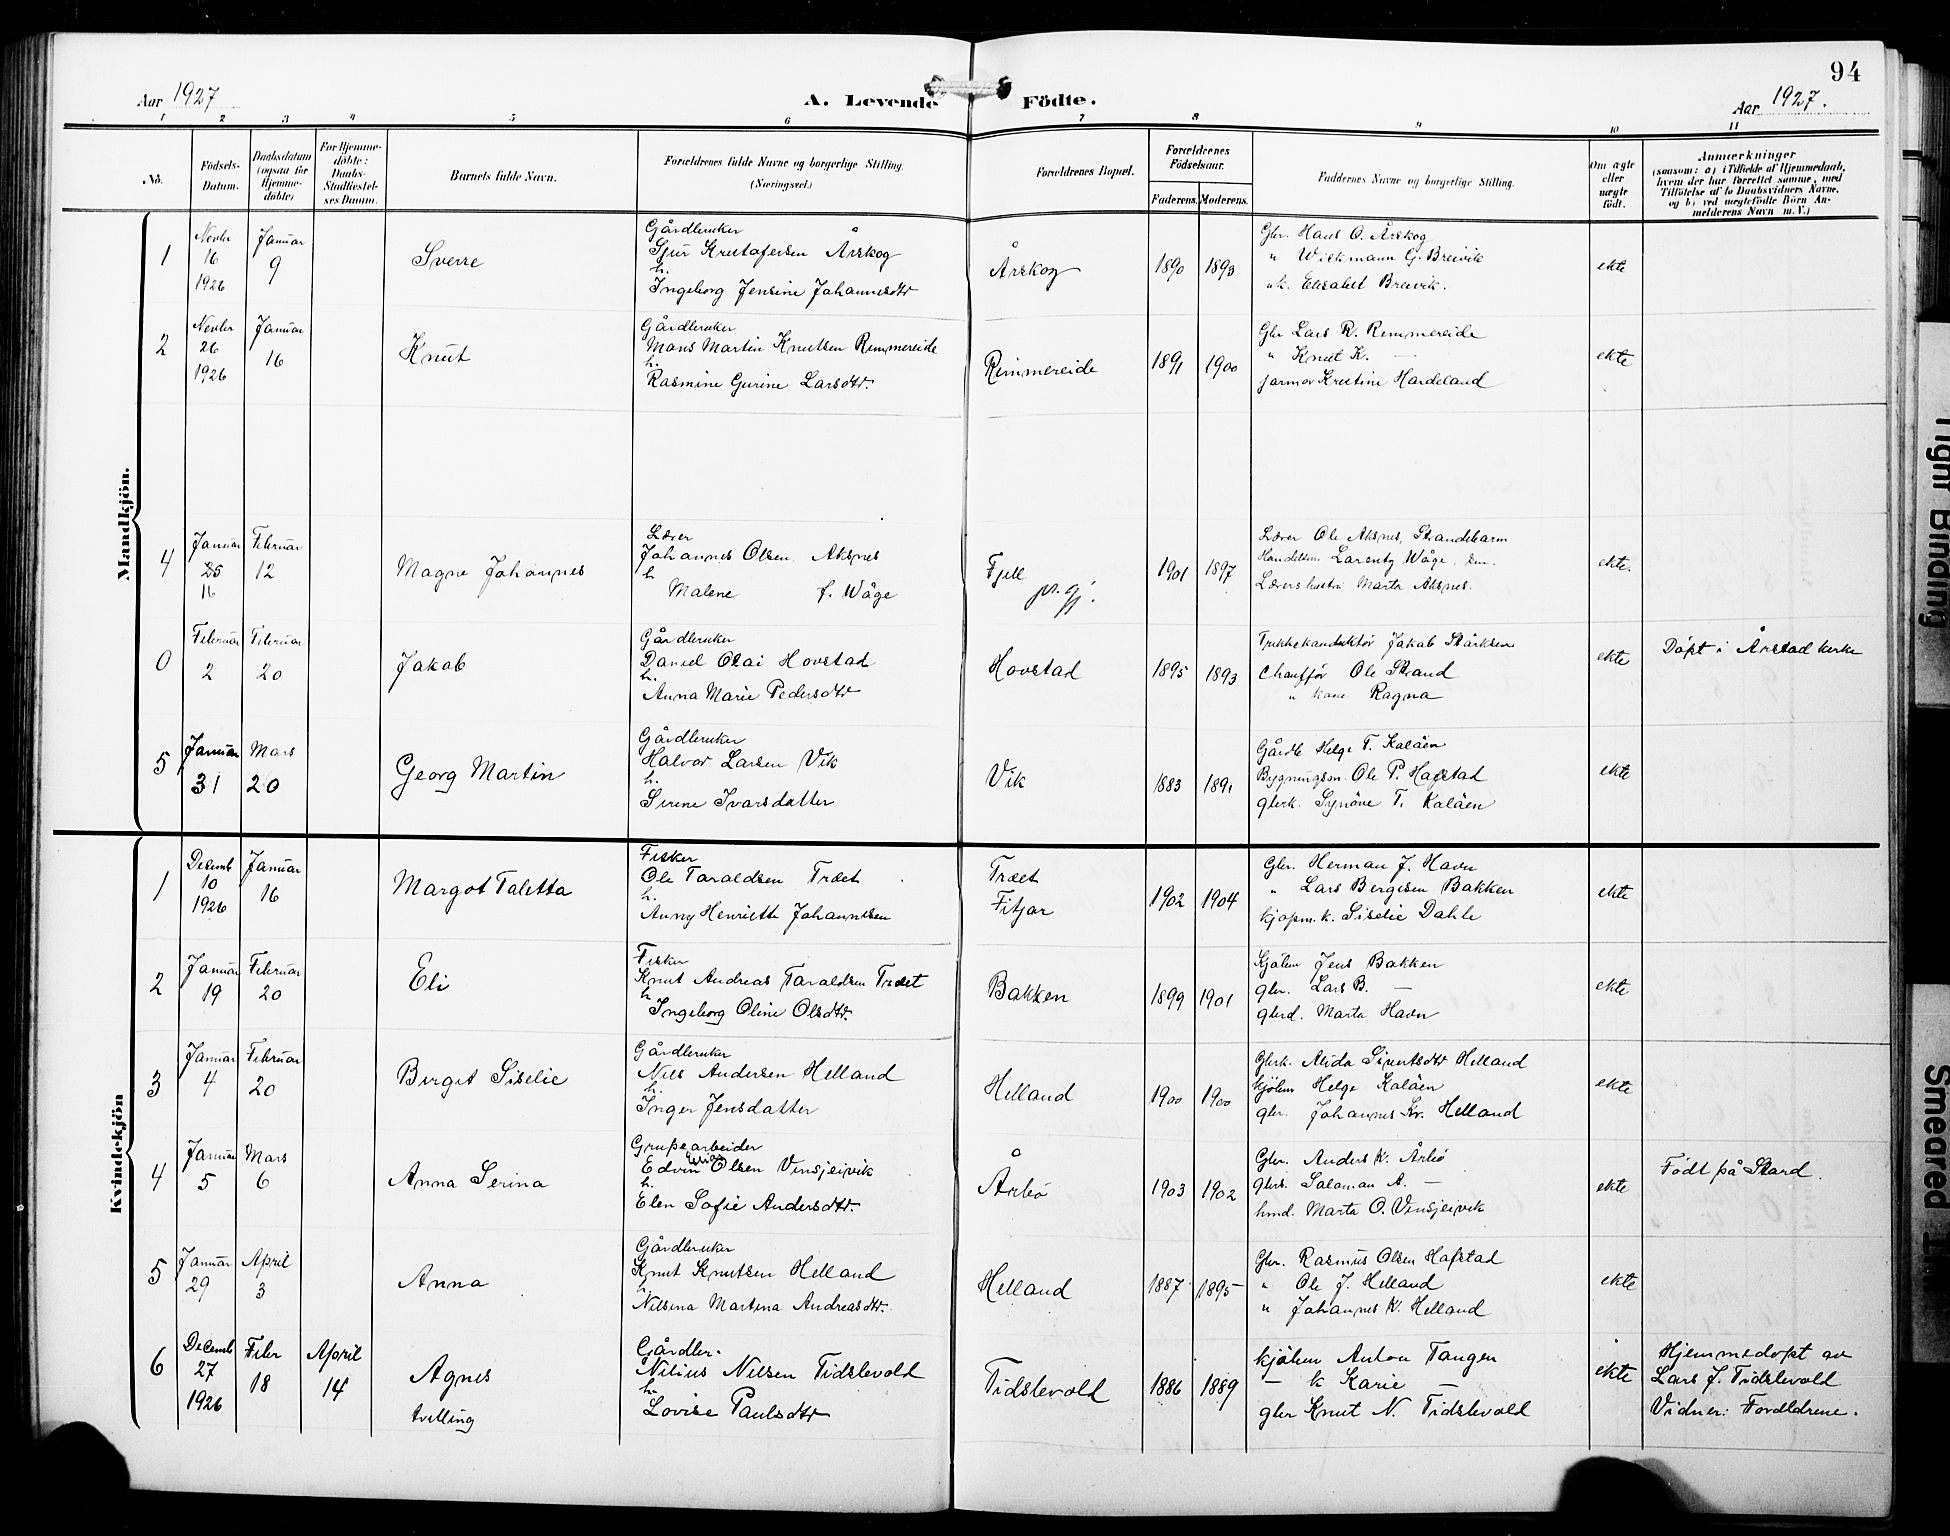 94
Aar 1927
A. Levende Födte.
Aar 1927.
1 2 3 4 5 6 7 8 9 10 11
No.
Födsels-
Datum.
Daabsdatum
(ogsaa for
Hjemme-
döbte)
For Hjemme-
döbte:
Daabs-
Stadfæstel-
ses Datum.
Barnets fulde Navn.
Forældrenes fulde Navne og borgerlige Stilling.
(Næringsvei.)
Forældrenes Bopæl.
Forældrenes
Födselsaar.
Faderens. Moderens.
Faddernes Navne og borgerlige Stilling.
Om ægte
eller
uægte
født.
Anmærkninger
(saasom: a) i Tilfælde af Hjemmedaab,
hvem der har forrettet samme, med
Tilföielse af to Daabsvidners Navne.
og b) ved uægtefödte Börn An-
melderens Navn m. V.)
Mandkjön.
1
Novbr
16
1926
Januar
9
Sverre
Gårdbruker
Sjur Kristofersen Årskog
h.
Ingeborg Jensine Johannesdtr
Årskog
1890 1893
Gbr. Hans O. Årskog
" Wickmann G. Breivik
" k. Elisabet Breivik.
ekte
2
Novbr
26
1926
Januar
16
Knut
Gårdbruker
Mons Martin Knutsen Rimmereide
h.
Rasmine Gurine Larsdtr.
Rimmereide
1891 1900
Gbr Lars R. Rimmereide
" Knut K. —
jarmor Kristine Hardeland
ekte
4
Januar
25
16
Februar
12
Magne Johannes
Lærer
Johannes Olsen Aksnes
h
Malene f. Våge
Fjell
pr. gj.
1901 1897
Lærer Ole Aksnes, Strandebarm
Handelsm. Larents Våge,
Lærershustru Marta Aksnes.
ekte.
0
Februar
2
Februar
20
Jakob
Gårdbruker
Daniel Olai Hovstad
h.
Anna Marie Pedersdtr
Hovstad
1895 1893
Trikkekonduktør Jakob Størksen
Chauffør Ole Strand
" kone Ragna
ekte
Döpt i Årstad kirke
5
Januar
31
Mars
20
Georg Martin
Gårdbruker
Halvor Larsen Vik
h.
Sirene Ivarsdatter
Vik
1883 1891
Gårdb Helge T. Kalåen
Bygningsm. Ole P. Hafstad
gbrk. Synöve T. Kalåen
ekte
Kvindekjön
1
Decemb
10
1926
Januar
16
Margot Taletta
Fisker
Ole Taraldsen Træet
h.
Anny Henriette Johannesen
Træet
Fitjar
1902 1904
Gbr. Herman J. Havn
" Lars Bergesen Bakken
kjøpm. k. Siselie Dahle
ekte
2
Januar
19
Februar
20
Eli
Fisker
Knut Andreas Taraldsen Træet
h
Ingeborg Oline Olsdtr.
Bakken
1899 1901
Kjølem Jens Bakken
gbr. Lars B. —
gbrd. Marta Havn
ekte
3
Januar
4
Februar
20
Birgit Siselie
Gårdbruker
Nils Andersen Helland
h.
Inger Jensdatter
Helland
1900 1900
Gbrk. Alida Sivertsdtr Helland
kjølem Helge Kalåen
gbr. Johannes Kr. Helland
ekte
4
Januar
5
Mars
6
Anna Serina
Grubearbeider
Edvin Olsen Vinsjeivik
h.
Elen Sofie Andersdtr.
Årbö
1903 1902
Gbr. Anders K. Årbö
gbrk. Salamon A. —
hmd. Marta O. Vinsjeivik
ekte
Födt på Stord.
5
Januar
29
April
3
Anna
Gårdbruker
Knut Knutsen Helland
h.
Nilsina Martina Andreasdtr.
Helland
1887 1895
Gbr. Rasmus Olsen Hafstad
" Ole J. Helland
" Johannes K. Helland
ekte
6
Decemb
27
1926
Febr
18
April
14
Agnes
tvilling
Gårdbr.
Nilius Nilsen Tidslevold
h.
Lovise Paulsdtr
Tidslevold
1886 1889
kjølem Anton Tangen
— k Karie —
gbr Knut N. Tidslevold
ekte
Hjemmedöpt av
Lars J. Tidslevold
Vidner: Foreldrene.
Tight Binding
Smeared Ink